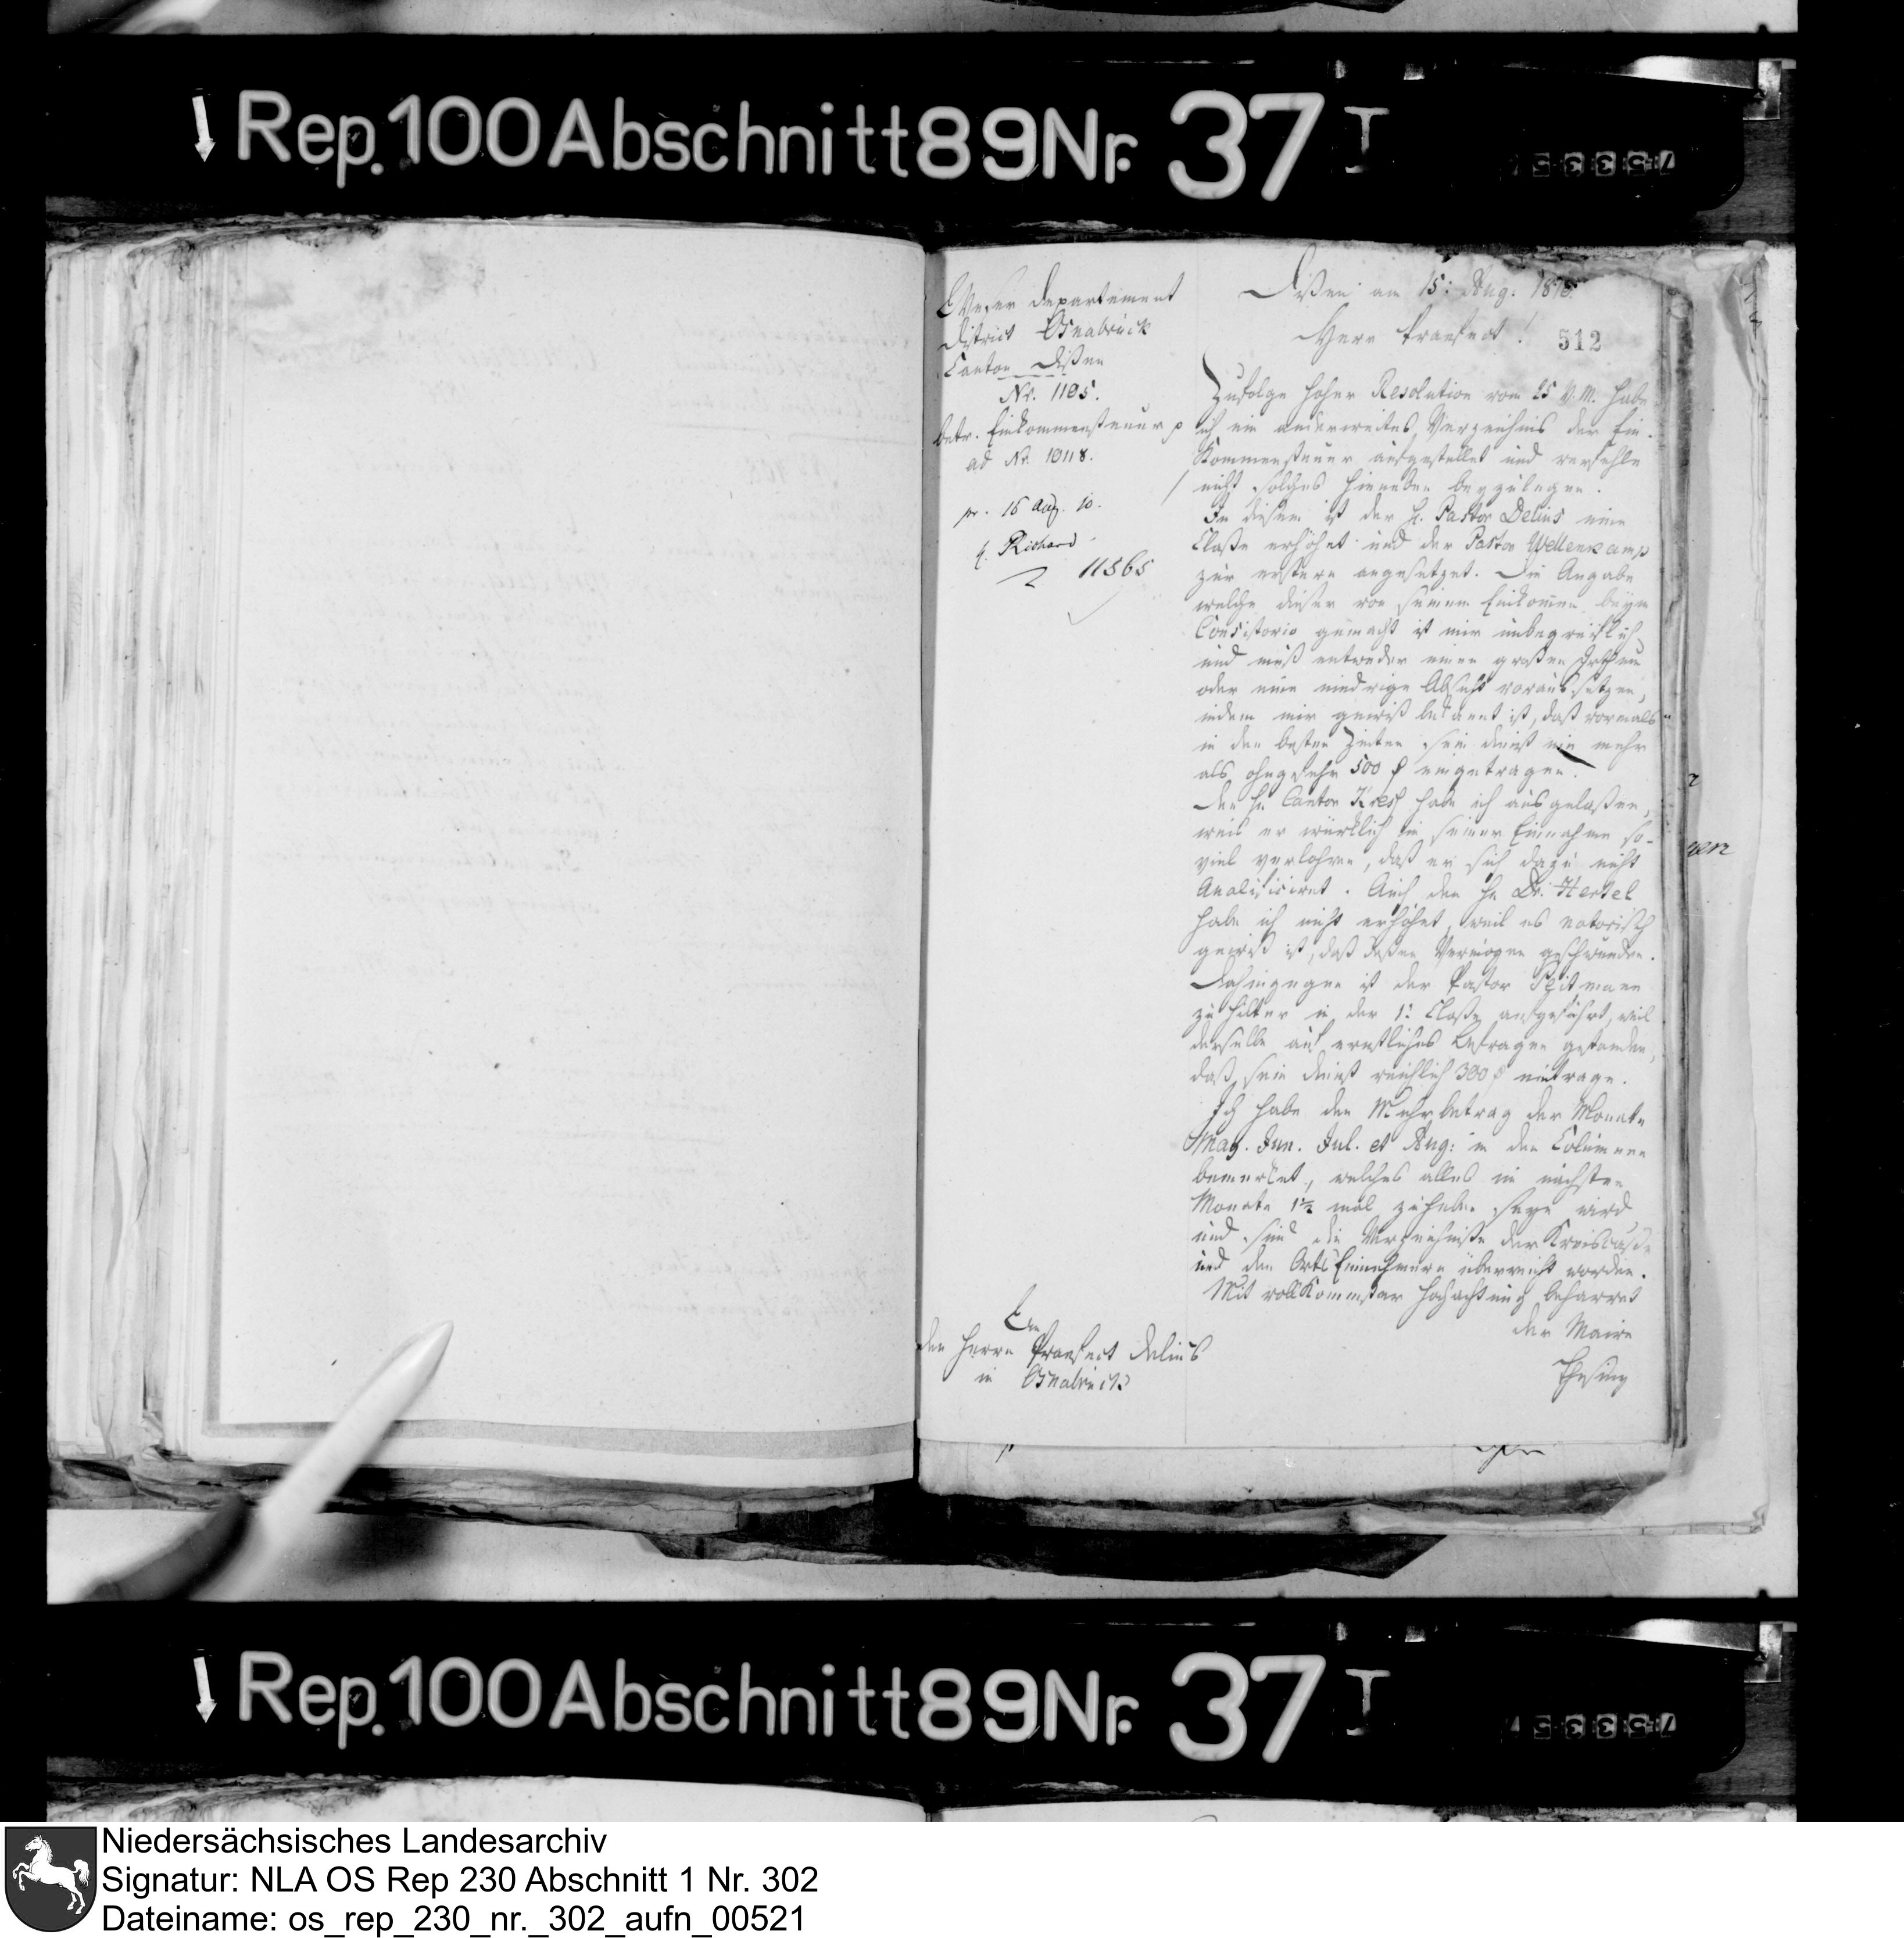 Rep. 100 Abschnitt 89 Nr. 37 I
Weser Departement
District Osnabrück
Canton Dißen
Nr. 1105.
betr. Einkommensteuer p
ad Nr. 10118.
pr. 16 Aug. 10.
H. Richard
11565
Dißen am 15: Aug: 1810
Herr Praefect!
512
Zufolge hoher Resolution vom 25 v. M. habe
ich ein anderweites Verzeichnis der Ein-
kommensteuer aufgestellet und verfehle
nicht solches hieneben beyzulegen.
In diesem ist der H. Pastor Delius eine
Claße erhöhet und der Pastor Wellenkamp
zur erstern angesetzet. Die Angabe
welche dieser von seinem Einkomen beym
Consistorio gemacht ist mir unbegreiflich,
und muß entweder einen großen Irthum
oder eine niedrige Absicht voraussetzen,
indem mir gewiß bekannt ist, daß vormals
in den besten Zeiten sein Dienst nie mehr
als ohngefehr 500 eingetragen.
Den Hn Cantor habe ich ausgelaßen,
weil er würklich in seiner Einnahme so-
viel verlohren, daß er sich dazu nicht
qualificiret. Auch den Hn Dr. Hertel
habe ich nicht erhöhet, weil es notorisch
gewiß ist, daß deßen Vermögen geschwunden.
Dahingegen ist der Pastor
zu Hilter in der 1: Claße aufgeführt, weil
derselbe auf ernstliches Befragen gestanden,
daß sein Dienst reichlich 300 eintrage.
Ich habe den Mehrbetrag der Monate
May. Jun. Jul. et Aug: in den Columnen
bemerket, welches alles im nächsten
Monate 1½ mal zu heben seyn wird
und sind die Verzeichniße der Kreiscaße
und den Orts Einnehmern überreicht worden.
Mit vollkommster Hochachtung beharret
der Maire
An
den Herrn Praefect Delius
in Osnabrück
Rep. 100 Abschnitt 89 Nr. 37 I
Niedersächsisches Landesarchiv
Signatur: NLA OS Rep 230 Abschnitt 1 Nr. 302
Dateiname: os_rep_230_nr._302_aufn_00521